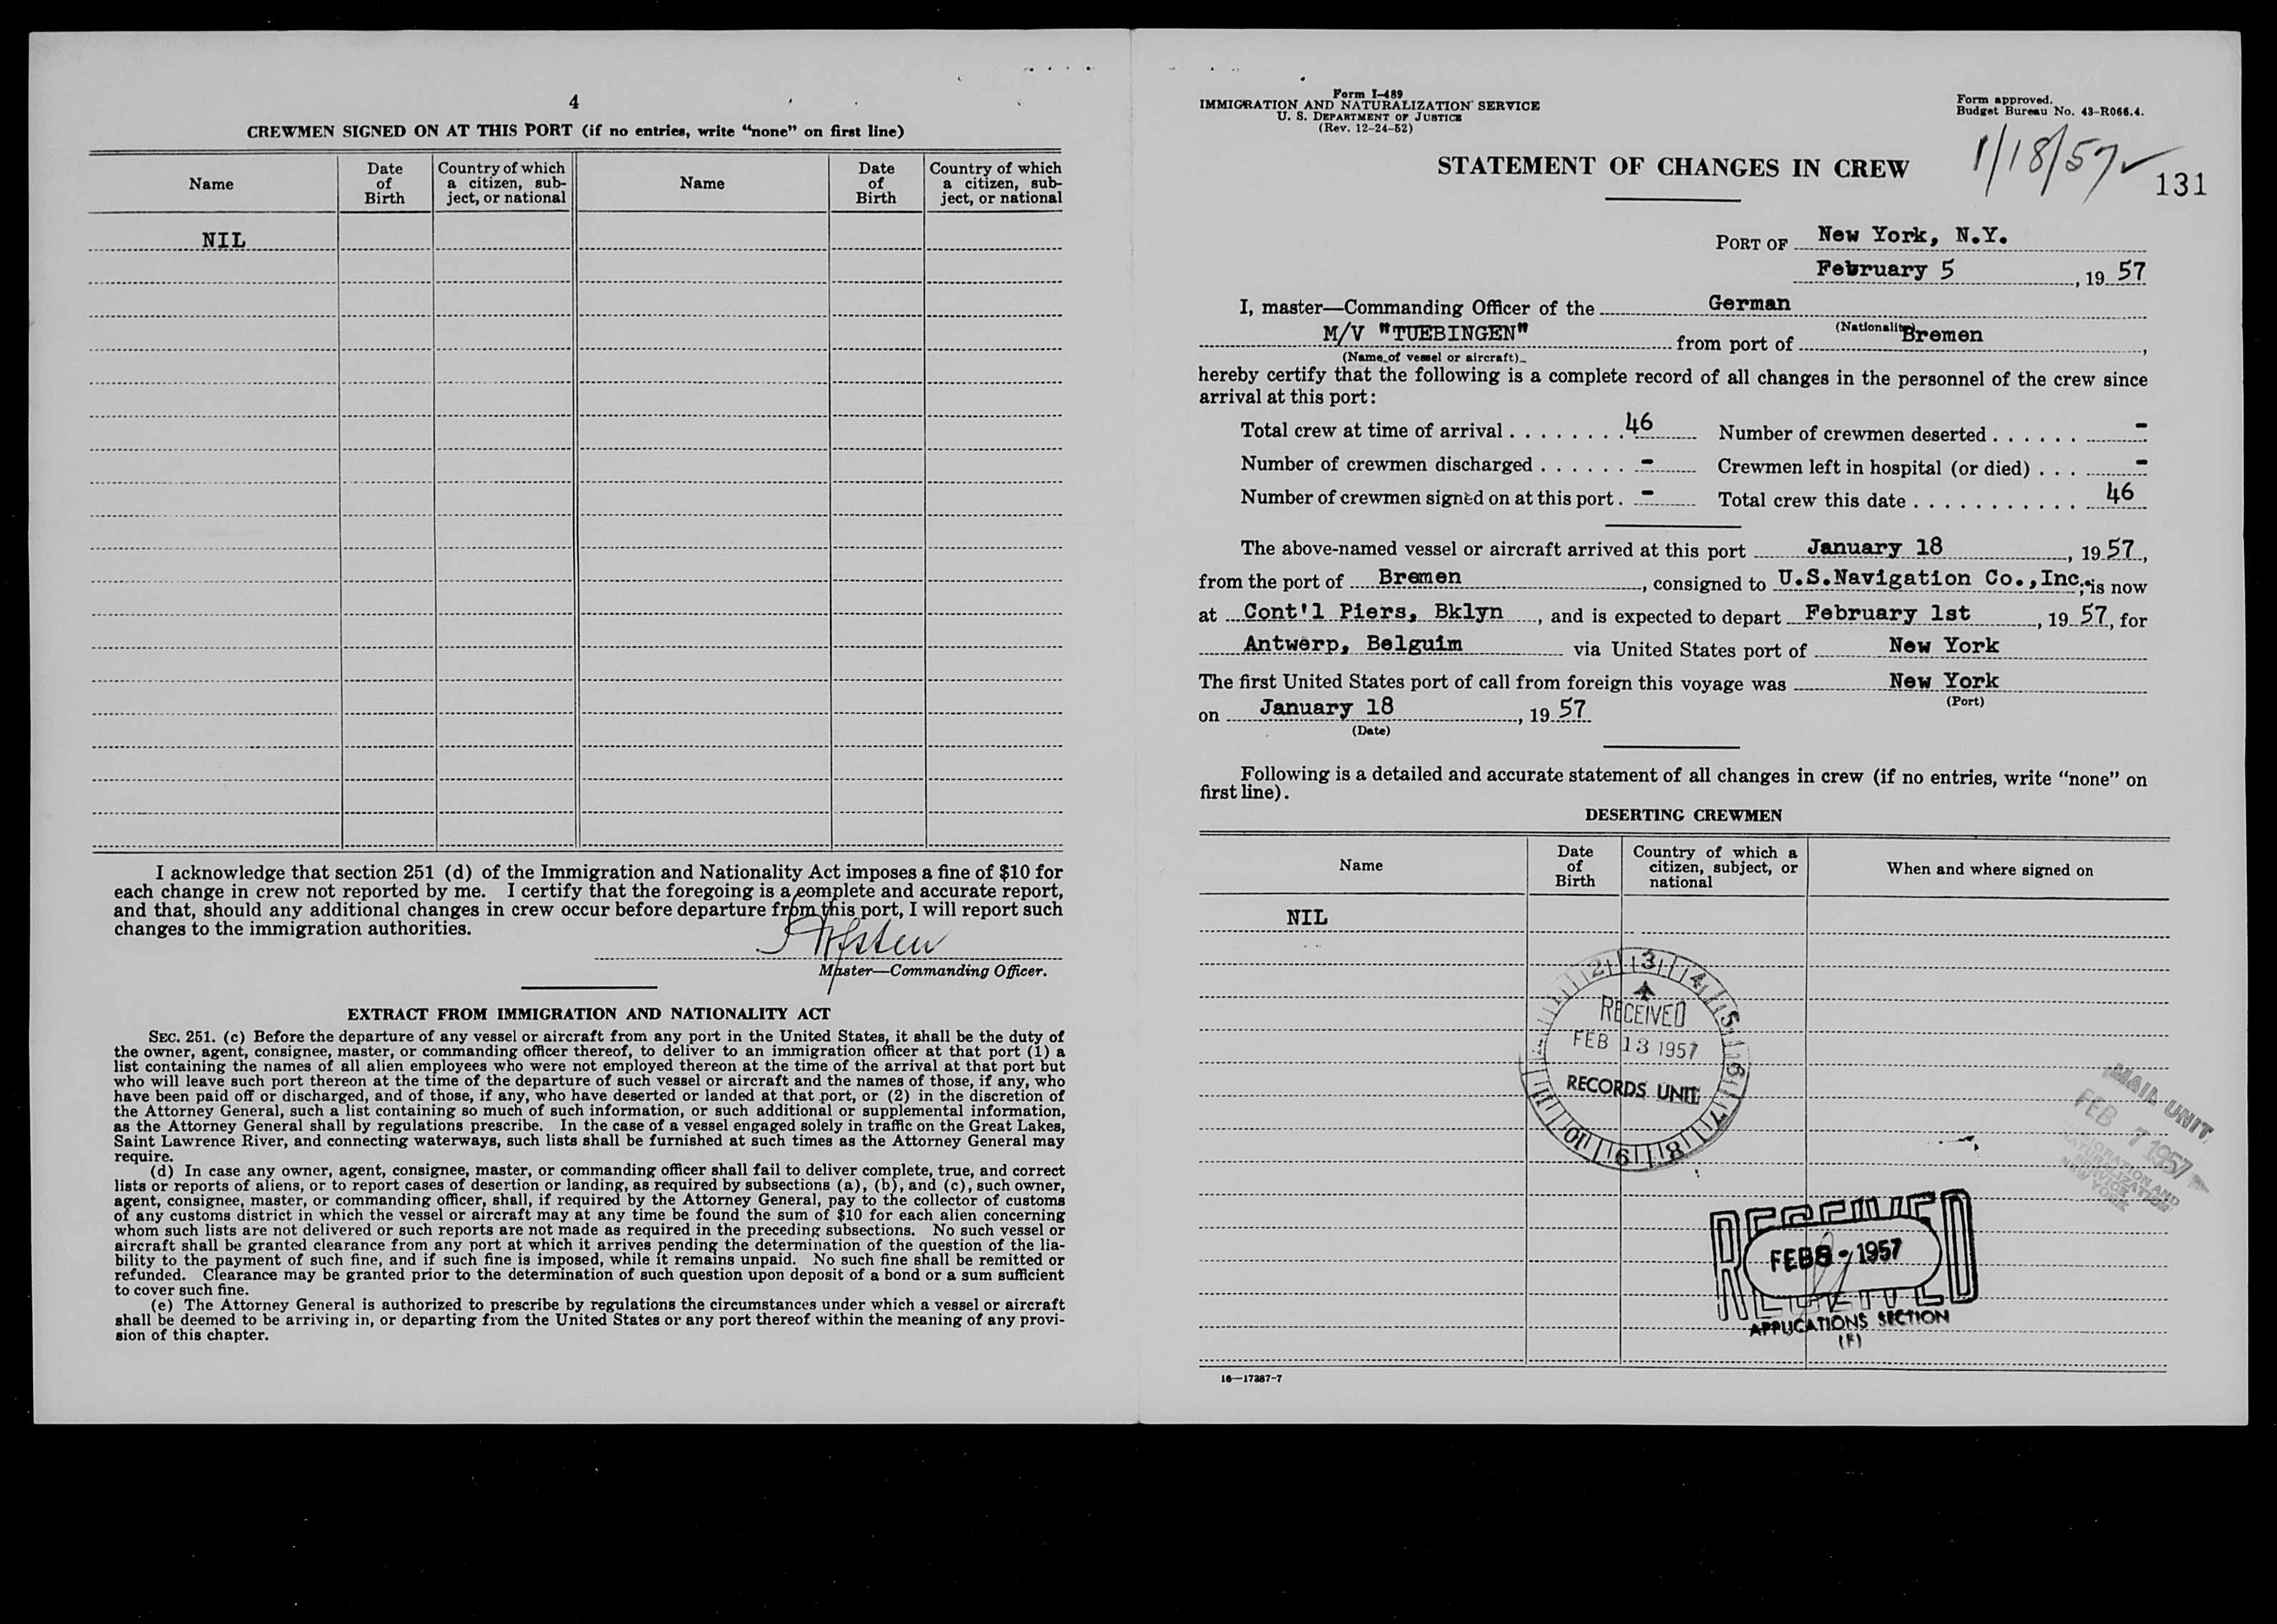 4
CREWMEN SIGNED ON AT THIS PORT (if no entries, write "none" on first line)
Name
Date of Birth
Country of which a citizen, subject, or national
Name
Date of Birth
Country of which a citizen, subject, or national
NIL
I acknowledge that section 251 (d) of the Immigration and Nationality Act imposes a fine of $10 for
each change in crew not reported by me. I certify that the foregoing is a complete and accurate report,
and that, should any additional changes in crew occur before departure from this port, I will report such
changes to the immigration authorities.
Master—Commanding Officer.
EXTRACT FROM IMMIGRATION AND NATIONALITY ACT
SEC. 251. (c) Before the departure of any vessel or aircraft from any port in the United States, it shall be the duty of
the owner, agent, consignee, master, or commanding officer thereof, to deliver to an immigration officer at that port (1) a
list containing the names of all alien employees who were not employed thereon at the time of the arrival at that port but
who will leave such port thereon at the time of the departure of such vessel or aircraft and the names of those, if any, who
have been paid off or discharged, and of those, if any, who have deserted or landed at that port, or (2) in the discretion of
the Attorney General, such a list containing so much of such information, or such additional or supplemental information,
as the Attorney General shall by regulations prescribe. In the case of a vessel engaged solely in traffic on the Great Lakes,
Saint Lawrence River, and connecting waterways, such lists shall be furnished at such times as the Attorney General may
require.
(d) In case any owner, agent, consignee, master, or commanding officer shall fail to deliver complete, true, and correct
lists or reports of aliens, or to report cases of desertion or landing, as required by subsections (a), (b), and (c), such owner,
agent, consignee, master, or commanding officer, shall, if required by the Attorney General, pay to the collector of customs
of any customs district in which the vessel or aircraft may at any time be found the sum of $10 for each alien concerning
whom such lists are not delivered or such reports are not made as required in the preceding subsections. No such vessel or
aircraft shall be granted clearance from any port at which it arrives pending the determination of the question of the lia-
bility to the payment of such fine, and if such fine is imposed, while it remains unpaid. No such fine shall be remitted or
refunded. Clearance may be granted prior to the determination of such question upon deposit of a bond or a sum sufficient
to cover such fine.
(e) The Attorney General is authorized to prescribe by regulations the circumstances under which a vessel or aircraft
shall be deemed to be arriving in, or departing from the United States or any port thereof within the meaning of any provi-
sion of this chapter.
Form I-489
IMMIGRATION AND NATURALIZATION SERVICE
U. S. DEPARTMENT OF JUSTICE
(Rev. 12-24-52)
Form approved.
Budget Bureau No. 43-R066.4.
1/18/57 ✓
131
STATEMENT OF CHANGES IN CREW
PORT OF New York, N.Y.
February 5, 19 57
I, master—Commanding Officer of the German
(Nationality)
M/V "TUEBINGEN" from port of Bremen,
(Name of vessel or aircraft)
hereby certify that the following is a complete record of all changes in the personnel of the crew since
arrival at this port:
Total crew at time of arrival . . . . . . . . 46 Number of crewmen deserted . . . . . . -
Number of crewmen discharged . . . . . . - Crewmen left in hospital (or died) . . . -
Number of crewmen signed on at this port . - Total crew this date . . . . . . . . . . . . 46
The above-named vessel or aircraft arrived at this port January 18, 19 57,
from the port of Bremen, consigned to U.S.Navigation Co.,Inc.; is now
at Cont'l Piers, Bklyn, and is expected to depart February 1st, 19 57, for
Antwerp, Belguim via United States port of New York
The first United States port of call from foreign this voyage was New York
(Port)
on January 18, 19 57
(Date)
Following is a detailed and accurate statement of all changes in crew (if no entries, write "none" on
first line).
DESERTING CREWMEN
Name
Date of Birth
Country of which a citizen, subject, or national
When and where signed on
NIL
2 3 4 5 6 7 8 9 10 11
RECEIVED
FEB 13 1957
RECORDS UNIT
MAIL UNIT
FEB 7 1957
IMMIGRATION AND
NATURALIZATION
SERVICE
NEW YORK
RECEIVED
FEB 8 - 1957
RECEIVED
APPLICATIONS SECTION
(F)
16—17387-7